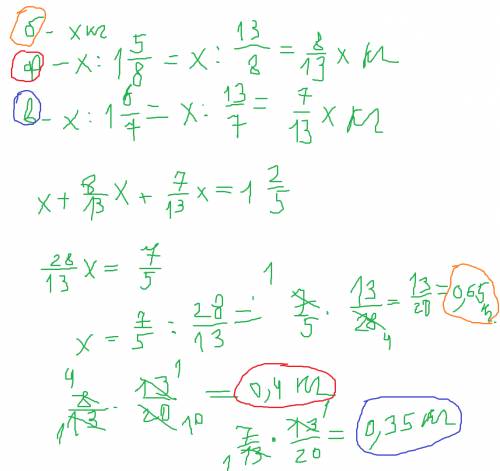 б - x кг
ф - x : 1 5/8 = x : 13/8 = 8/13 x кг
в - x : 1 6/7 = x : 13/7 = 7/13 x кг
x + 8/13 x + 7/13 x = 1 2/5
28/13 x = 7/5
x = 7/5 : 28/13 = 1 7/5 · 13/28 4 = 13/20 = 0,65 кг
4 8/1 13 · 13 1/20 10 = 0,4 кг
7/1 13 · 13 1/20 = 0,35 кг